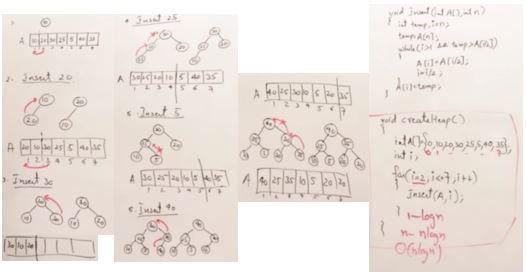 1.
10
A 10 20 30 25 5 40 35
2. Insert 20
10
20
20
10
A 20 10 30 25 5 40 35
1 2 3 4 5 6 7
3. Insert 30
30 10 20
4. Insert 25
A 30 25 20 10 5 40 35
1 2 3 4 5 6 7
5. Insert 5
A 30 25 20 10 5 40 35
1 2 3 4 5 6 7
6. Insert 40
A 40 25 30 10 5 20 35
1 2 3 4 5 6 7
A 40 25 35 10 5 20 30
1 2 3 4 5 6 7
void Insert(int A[],int n)
{
int temp,i=n;
temp=A[n];
while(i>1 && temp>A[i/2])
{
A[i]=A[i/2];
i=i/2;
}
A[i]=temp;
}
void createHeap()
{
int A[]={0,10,20,30,25,5,40,35};
0 1 2 7
int i;
for(i=2;i<=7;i++)
Insert(A,i);
}
1-logn
n- nlogn
O(nlogn)